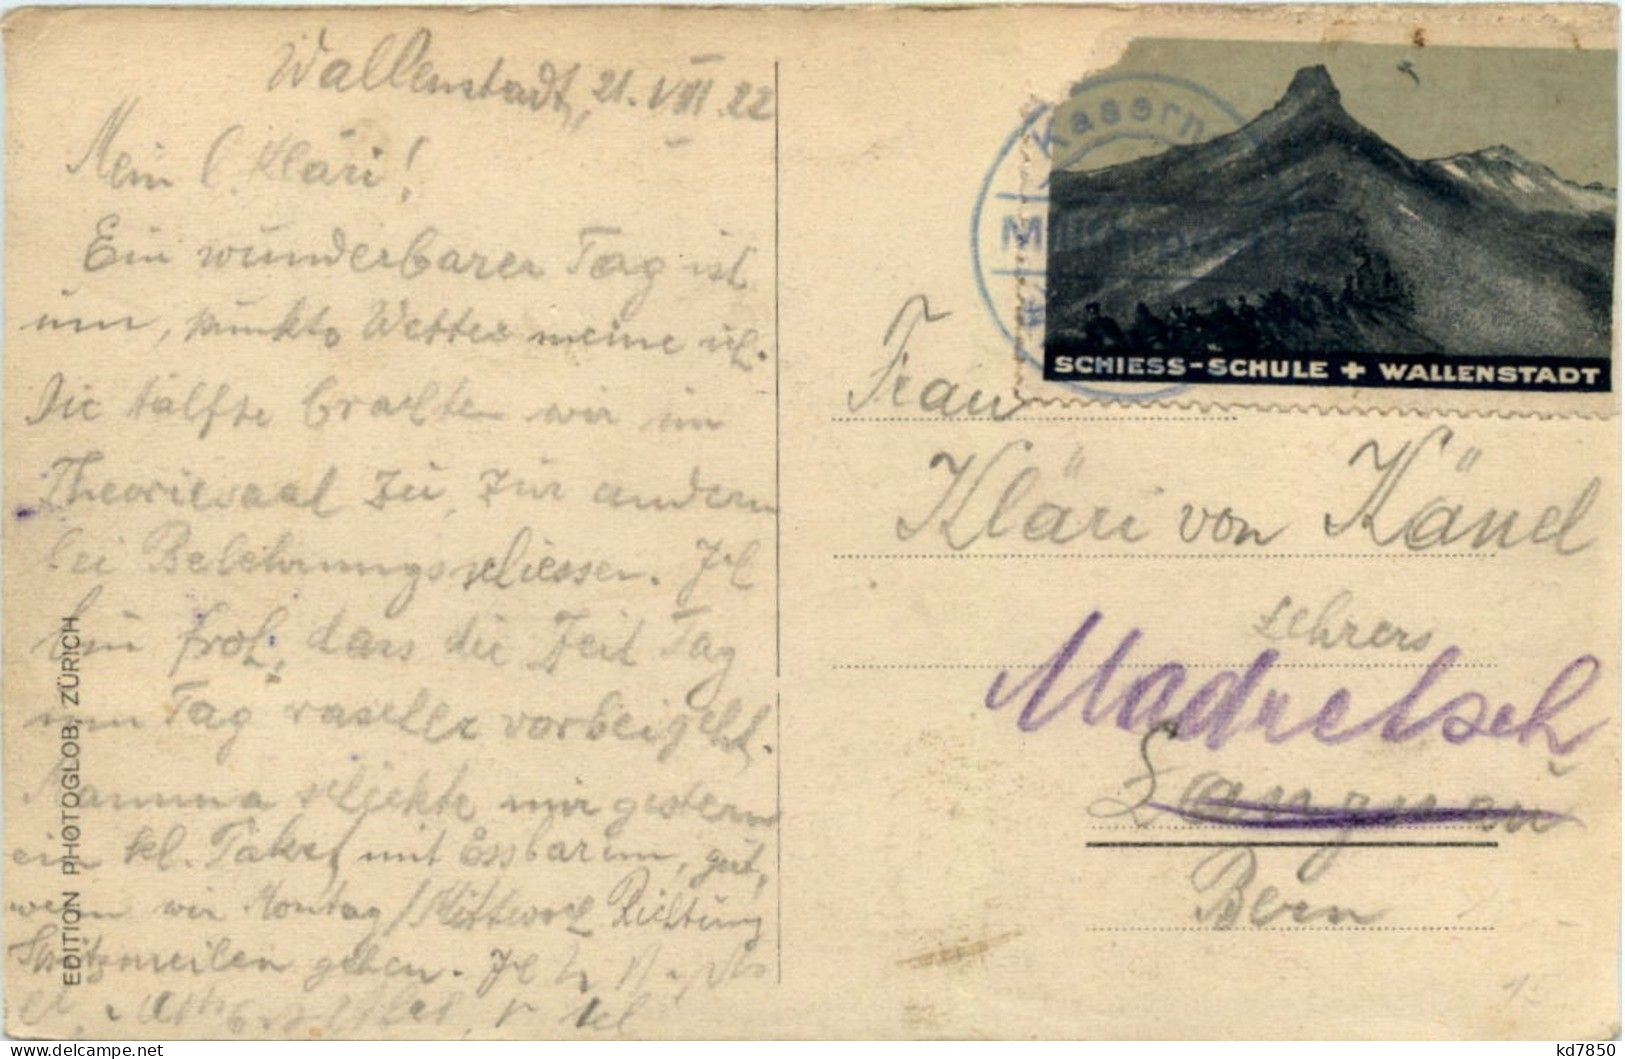 Wallenstadt, 21. VIII 22
Mein l. Kläri!
Ein wunderbarer Tag ist
um, punkto Wetter meine ich.
Die Hälfte brachten wir im
Theoriesaal zu, zur andern
bei Belehrungsschiessen. Ich
bin froh, dass die Zeit Tag
um Tag rascher vorbeigeht.
Mamma schickte mir gestern
ein kl. Paket mit Essbarem, gut,
wenn wir Montag / Mittwoch Richtung
Spitzmeilen gehen. Ich
EDITION PHOTOGLOB, ZÜRICH
Kasern
SCHIESS-SCHULE + WALLENSTADT
Frau
Kläri von Känel
Lehrers
Madretsch
Langnau
Bern
kd7850